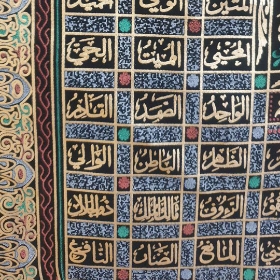 المتين الولي الحميد
المحيي المميت الحي
الواحد الصمد القادر
الظاهر الباطن الوالي
الرؤوف مالك الملك
المانع الضار النافع